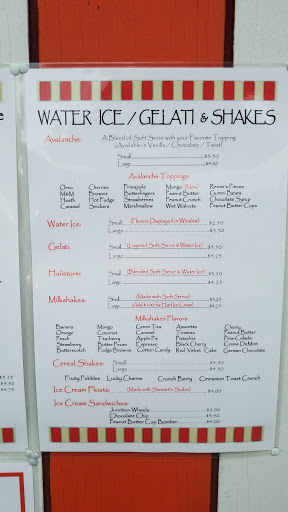 WATER ICE / GELATI & SHAKES
Avalanche:
A Blend of Soft Serve with your Favorite Topping
(Available in Vanilla / Chocolate / Twist)
Small $3.50
Large $4.50
Avalanche Toppings
Oreo Cherries Pineapple Mango (New) Reese's Pieces
M&M Brownie Butterfingers Peanut Butter Gummi Bears
Heath Hot Fudge Strawberries Peanut Crunch Chocolate Syrup
Caramel Snickers Marshmallow Wet Walnuts Peanut Butter Cups
Water Ice: Small (Flavors Displayed in Window) $2.50
Large $3.50
Gelati: Small (Layered Soft Serve & Water Ice)
Large
Hailstorm: Small (Blended Soft Serve & Water Ice)
Large
Milkshakes: Small (Made with Soft Serve)
Large
Milkshakes Flavors
Banana Mango Green Tea Amaretto Cherry
Orange Coconut Caramel Tiramisu Peanut Butter
Peach Teaberry Apple Pie Pistachio Pina-Colada
Strawberry Butter Pecan Espresso Black Cherry Creme DeMint
Butterscotch Fudge Brownie Cotton Candy Red Velvet Cake German Chocolate
Cereal Shakes: Small
Large
Fruity Pebbles Lucky Charms Crunch Berry Cinnamon Toast Crunch
Ice Cream Floats: (Made with Stewart's Sodas)
Ice Cream Sandwiches:
Junction Wheels $2.00
Chocolate Chip
Peanut Butter Cup Bomber $4.00